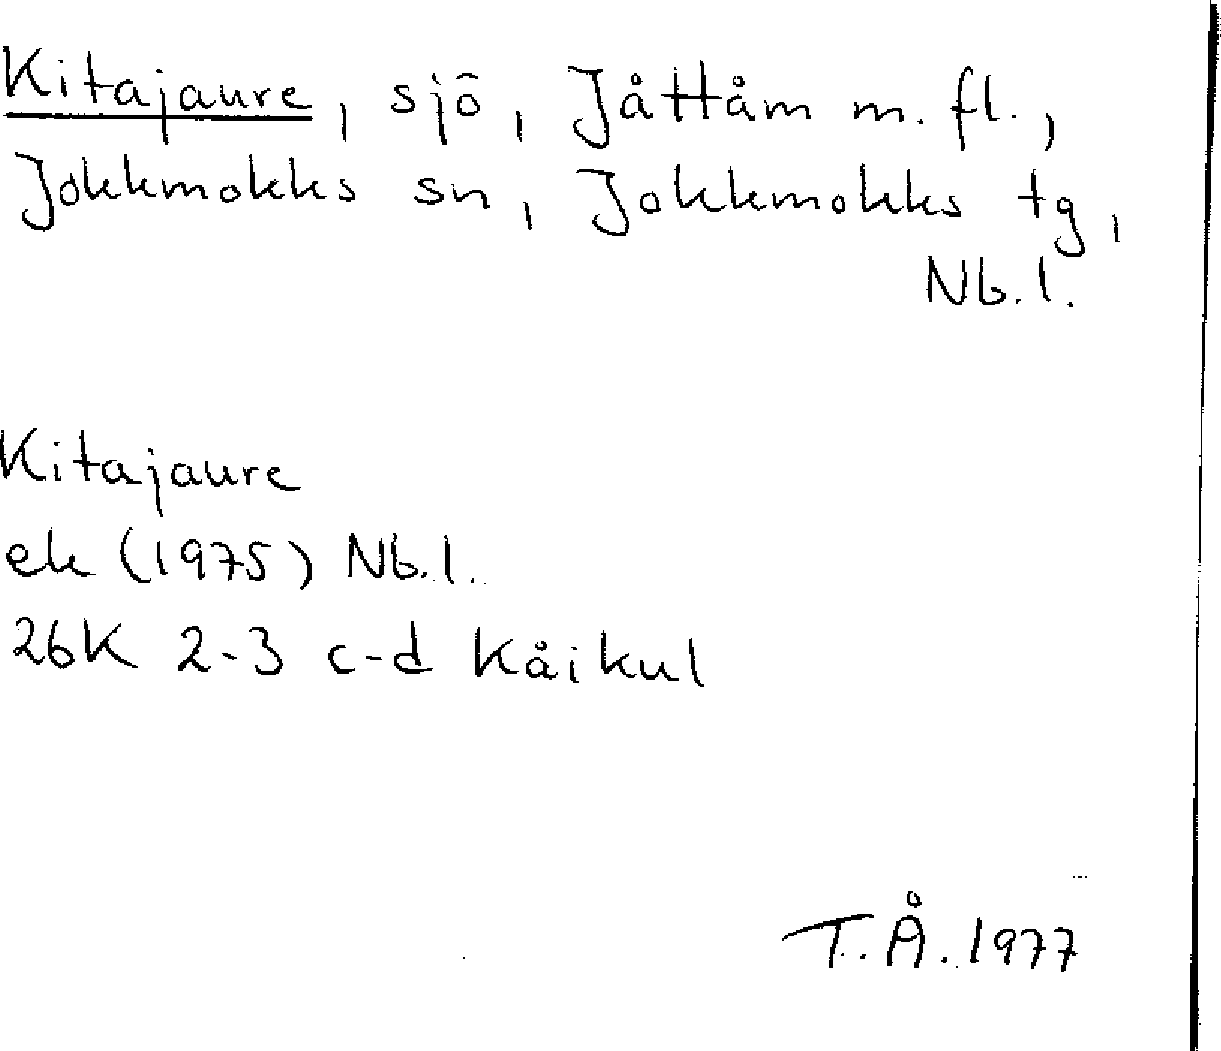 Kitajaure, sjö, Jåttåm m. fl.,
Jokkmokks sn, Jokkmokks tg,
Nb. l.
Kitajaure
ek (1975) Nb. l.
26K 2-3 c-d Kåikul
T. Å. 1977